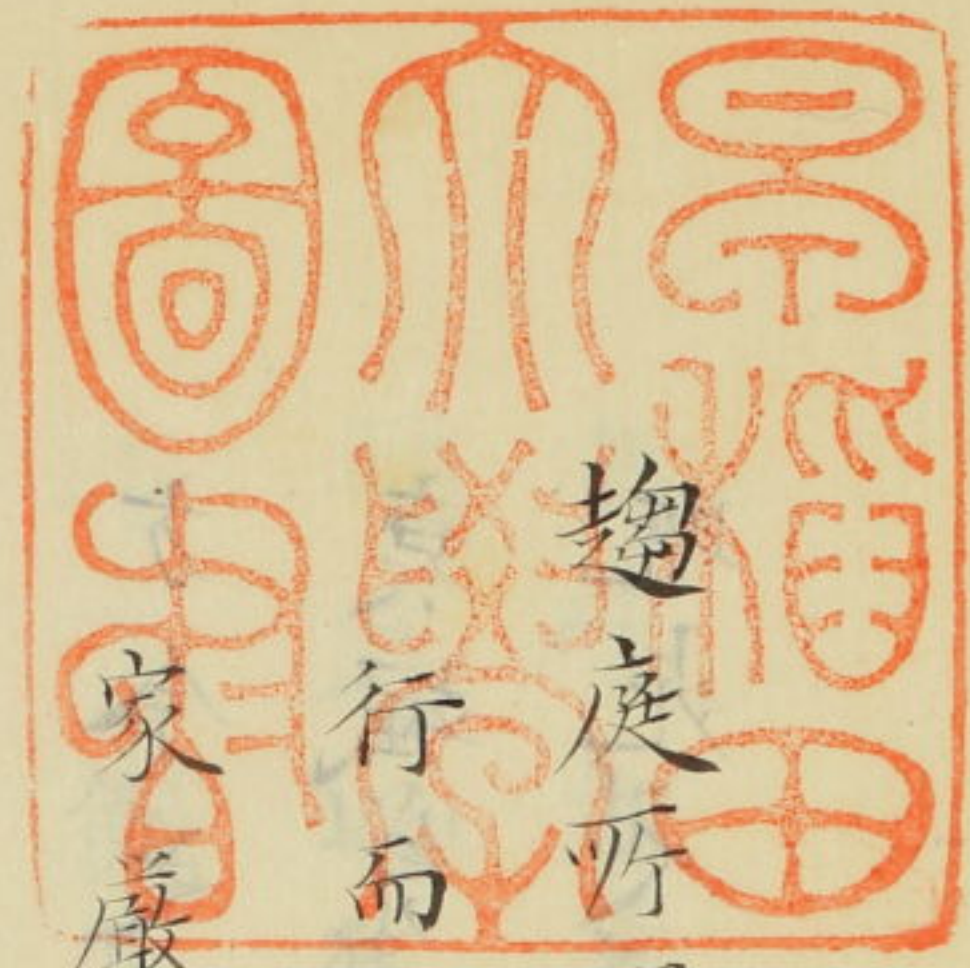 早稻田
大學
圖書
趨庭所
行而
家厳